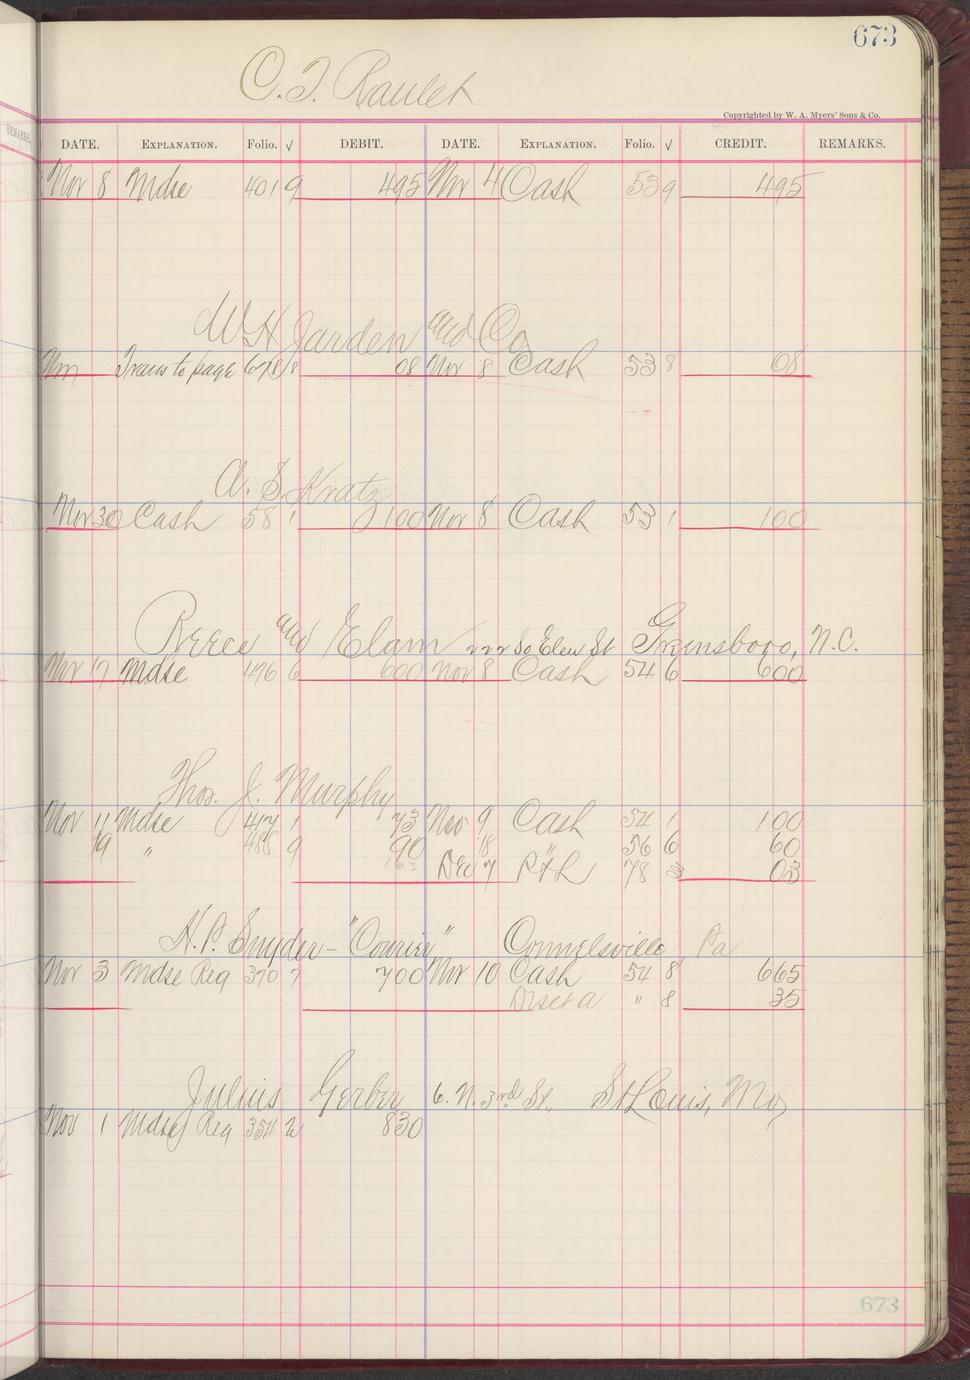 673
C. T. Raulet
Copyrighted by W. A. Myers' Sons & Co.
DATE. EXPLANATION. Folio. √ DEBIT. DATE. EXPLANATION. Folio. √ CREDIT. REMARKS.
Nov 8 Mdse 401 9 495 Nov 4 Cash 53 9 495
W H Jarden and Co
Trans to page 678 8 08 Nov 8 Cash 53 8 08
A. S. Kratz
Nov 30 Cash 58 1 100 Nov 8 Cash 53 1 100
Reece and Elam So Elm St Greensboro, N.C.
Nov 17 Mdse 476 6 600 Nov 8 Cash 54 6 600
Thos. J. Murphy
Nov 11 Mdse 1 73 Nov 9 Cash 54 1 100
19 " 485 9 90 18 " 56 6 60
163 Dec 7 P&L 78 3 03
H. P. Snyder - "Courier" Connelsville Pa
Nov 3 Mdse Reg 370 7 700 Nov 10 Cash 54 8 665
" 8 35
Julius Gerber 6. N. 3rd St., St Louis, Mo,
Nov 1 Mdse Reg 354 2 830
673